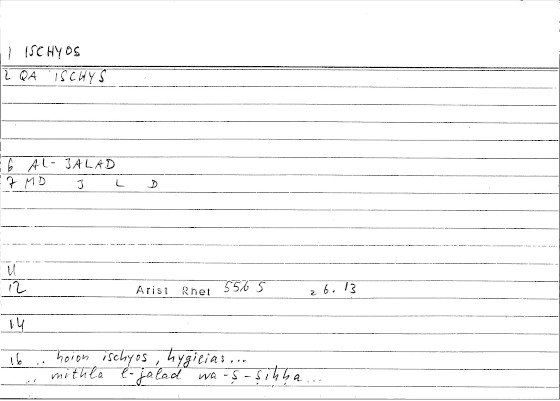 1 ISCHYOS
2 QA ISCHYS
6 AL-JALAD
7 MD J L D
11
12 Arist Rhet 55b5 26.13
14
16 .. hoion ischyos, hygieias...
.. mithla l-jalad wa-ṣ-ṣiḥḥa...